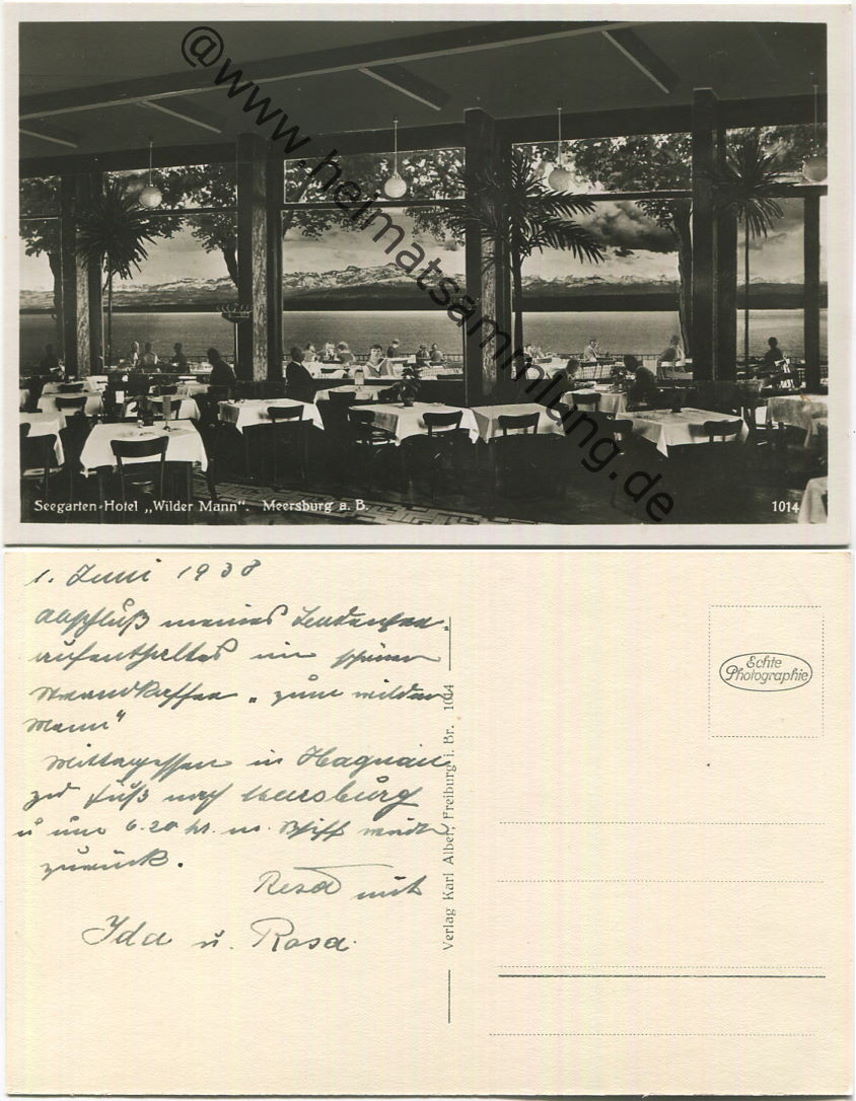 @www.heimatsammlung.de
Seegarten-Hotel „Wilder Mann". Meersburg a. B.
1014
1. Juni 1938
Abschluß meines Bodensee-
aufenthaltes im schönen
Strandkaffee „zum wilden
Mann"
Mittagessen in Hagnau
zu Fuß nach Meersburg
u um 6.20 hr. m. Schiff wieder
zurück.
Resa mit
Ida u. Rosa.
Verlag Karl Alber, Freiburg i. Br. 1014
Echte
Photographie